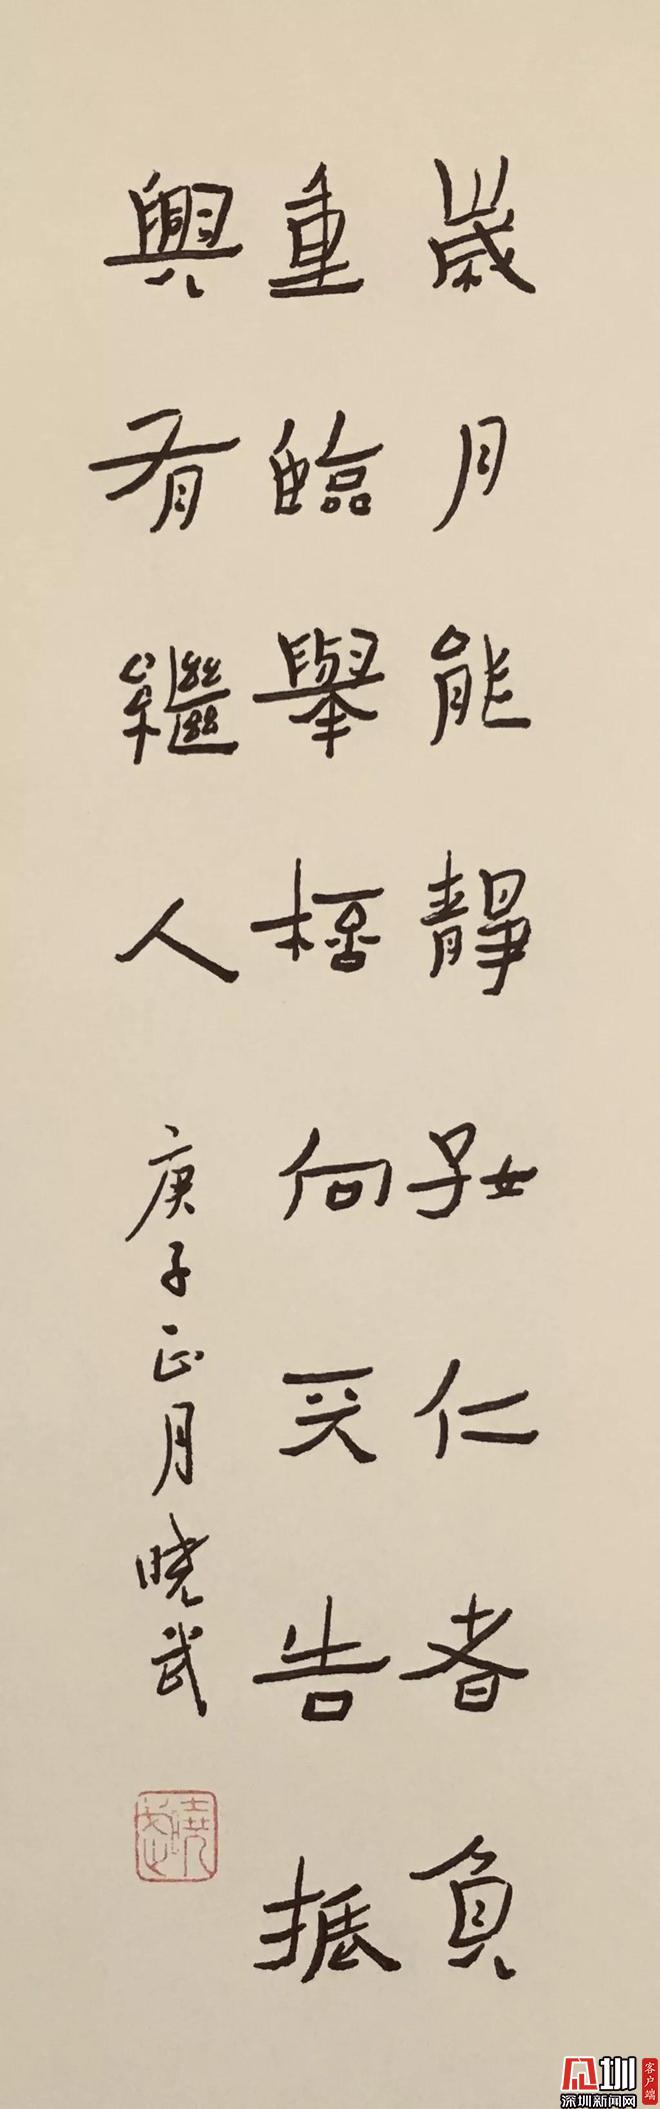 歲月能靜好仁者負
重臨舉桮向天告振
興有繼人
庚子正月曉武
曉武
深圳新闻网
客户端